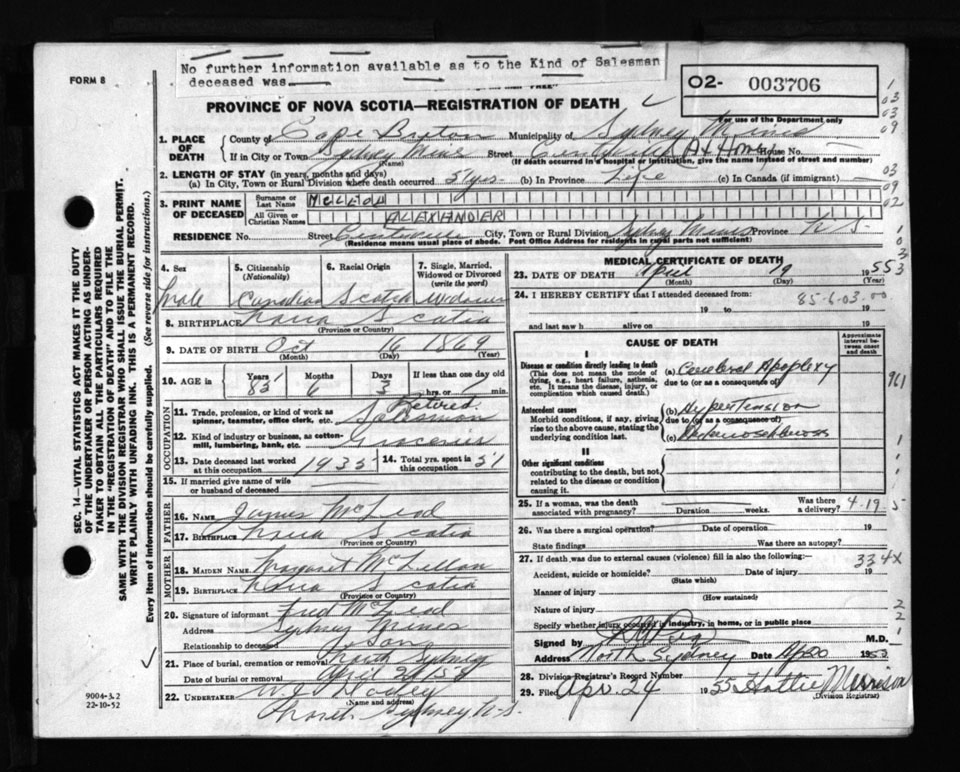 FORM 8
No further information available as to the Kind of Salesman
deceased was
O2- 003706
For use of the Department only
PROVINCE OF NOVA SCOTIA—REGISTRATION OF DEATH
1. PLACE OF DEATH
County of Cape Breton Municipality of Sydney Mines
If in City or Town Sydney Mines Street Centreville At Home House No.
(Name) (If death occurred in a hospital or institution, give the name instead of street and number)
2. LENGTH OF STAY (in years, months and days)
(a) In City, Town or Rural Division where death occurred 51 yrs. (b) In Province Life (c) In Canada (if immigrant) —
3. PRINT NAME OF DECEASED
Surname or Last Name McLEOD
All Given or Christian Names ALEXANDER
RESIDENCE No. Street Centreville City, Town or Rural Division Sydney Mines Province N.S.
(Residence means usual place of abode. Post Office Address for residents in rural parts not sufficient)
4. Sex
Male
5. Citizenship (Nationality)
Canadian
6. Racial Origin
Scotch
7. Single, Married, Widowed or Divorced (write the word)
Widower
8. BIRTHPLACE Nova Scotia
(Province or Country)
9. DATE OF BIRTH Oct 16 1869
(Month) (Day) (Year)
10. AGE in Years 85 Months 6 Days 3 If less than one day old
hrs. or min.
OCCUPATION
11. Trade, profession, or kind of work as spinner, teamster, office clerk, etc. Retired Salesman
12. Kind of industry or business, as cotton-mill, lumbering, bank, etc. Groceries
13. Date deceased last worked at this occupation 1935
14. Total yrs. spent in this occupation 51
15. If married give name of wife or husband of deceased
FATHER
16. NAME James McLeod
17. BIRTHPLACE Nova Scotia
(Province or Country)
MOTHER
18. MAIDEN NAME Margaret McLellan
19. BIRTHPLACE Nova Scotia
(Province or Country)
20. Signature of informant Fred McLeod
Address Sydney Mines
Relationship to deceased Son
21. Place of burial, cremation or removal North Sydney
Date of burial or removal April
22. UNDERTAKER W.J. Dooley
(Name and address)
North Sydney N.S.
MEDICAL CERTIFICATE OF DEATH
23. DATE OF DEATH April 19 1955
(Month) (Day) (Year)
24. I HEREBY CERTIFY that I attended deceased from
85-6-03-00
19 to 19
and last saw h alive on 19
CAUSE OF DEATH
Approximate interval between onset and death
I
Disease or condition directly leading to death
(This does not mean the mode of dying, e.g., heart failure, asthenia, etc. It means the disease, injury, or complication which caused death.)
(a) Cerebral Apoplexy
due to (or as a consequence of)
Antecedent causes
Morbid conditions, if any, giving rise to the above cause, stating the underlying condition last.
(b) Hypertension
due to (or as a consequence of)
(c) Arteriosclerosis
II
Other significant conditions
contributing to the death, but not related to the disease or condition causing it.
25. If a woman, was the death associated with pregnancy? Duration weeks. Was there a delivery?
4-19-5
26. Was there a surgical operation? Date of operation 19
State findings Was there an autopsy?
27. If death was due to external causes (violence) fill in also the following:—
Accident, suicide or homicide? Date of injury 19
(State which)
334X
Manner of injury
(How sustained)
Nature of injury
Specify whether injury occurred in industry, in home, or in public place
Signed by M.D.
Address North Sydney Date Ap 20
28. Division Registrar's Record Number
29. Filed Apr. 24 1955 Hattie Morrison
(Division Registrar)
SEC. 14—VITAL STATISTICS ACT MAKES IT THE DUTY
OF THE UNDERTAKER OR PERSON ACTING AS UNDER-
TAKER TO OBTAIN ALL THE PARTICULARS REQUIRED
IN THE "REGISTRATION OF DEATH" AND TO FILE THE
SAME WITH THE DIVISION REGISTRAR WHO SHALL ISSUE THE BURIAL PERMIT.
WRITE PLAINLY WITH UNFADING INK. THIS IS A PERMANENT RECORD.
Every item of information should be carefully supplied. (See reverse side for instructions.)
9004-3.2
22-10-52
1
03
03
09
03
09
02
1
0
3
3
961
1
1
1
2
2
1